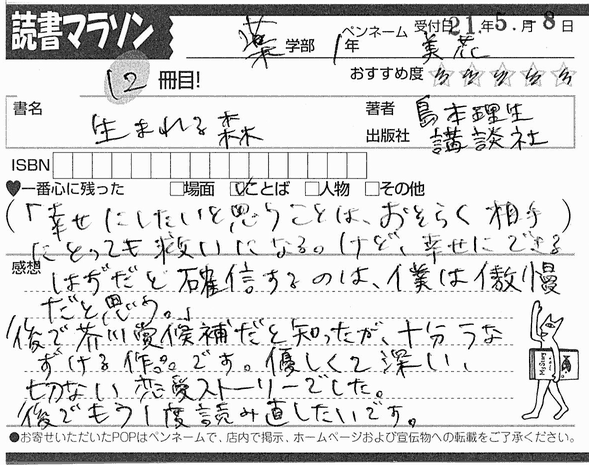 読書マラソン
薬学部 1年 ペンネーム 美花 受付日21年5月8日
12冊目! おすすめ度 ☆☆☆☆☆
書名 生まれる森
著者 島本理生
出版社 講談社
ISBN
♥一番心に残った □場面 ☑ことば □人物 □その他
(「幸せにしたいと思うことは、おそらく相手)
にとっても救いになる。けど、幸せにできる
感想
はずだと確信するのは、僕は傲慢
だと思う。」
後で芥川賞候補だと知ったが、十分うな
ずける作品です。優しくて深い、
切ない恋愛ストーリーでした。
後でもう1度読み直したいです。
●お寄せいただいたPOPはペンネームで、店内で掲示、ホームページおよび宣伝物への転載をご了承ください。